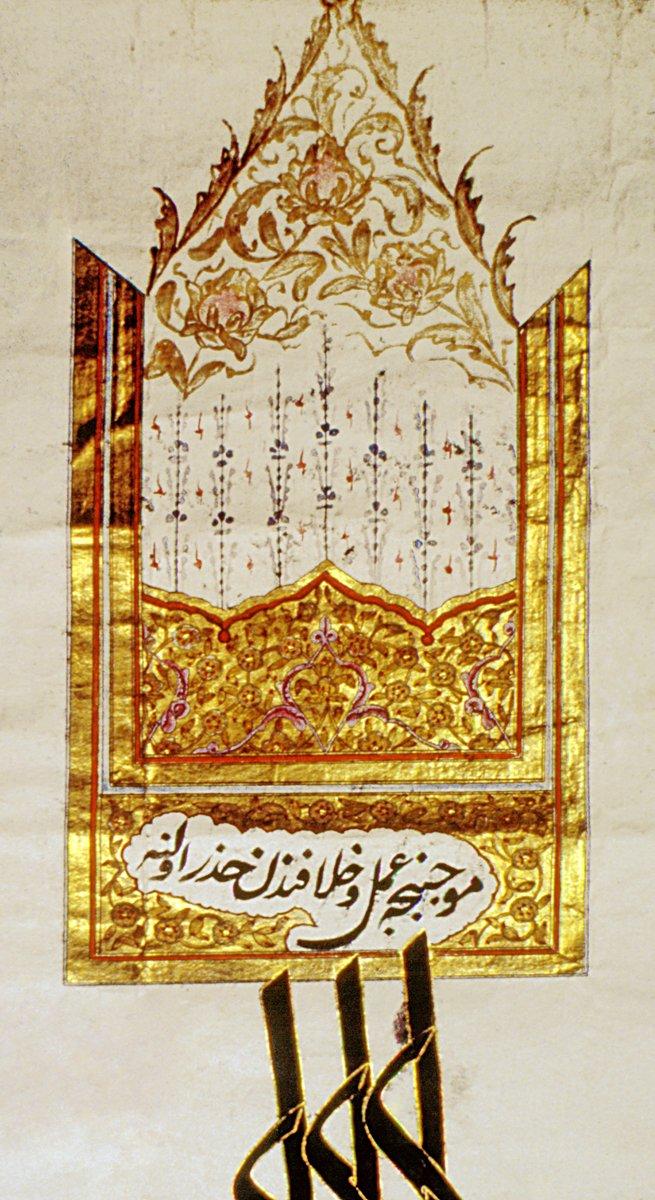 موجبنجه عمل و خلافندن حذر اولنه